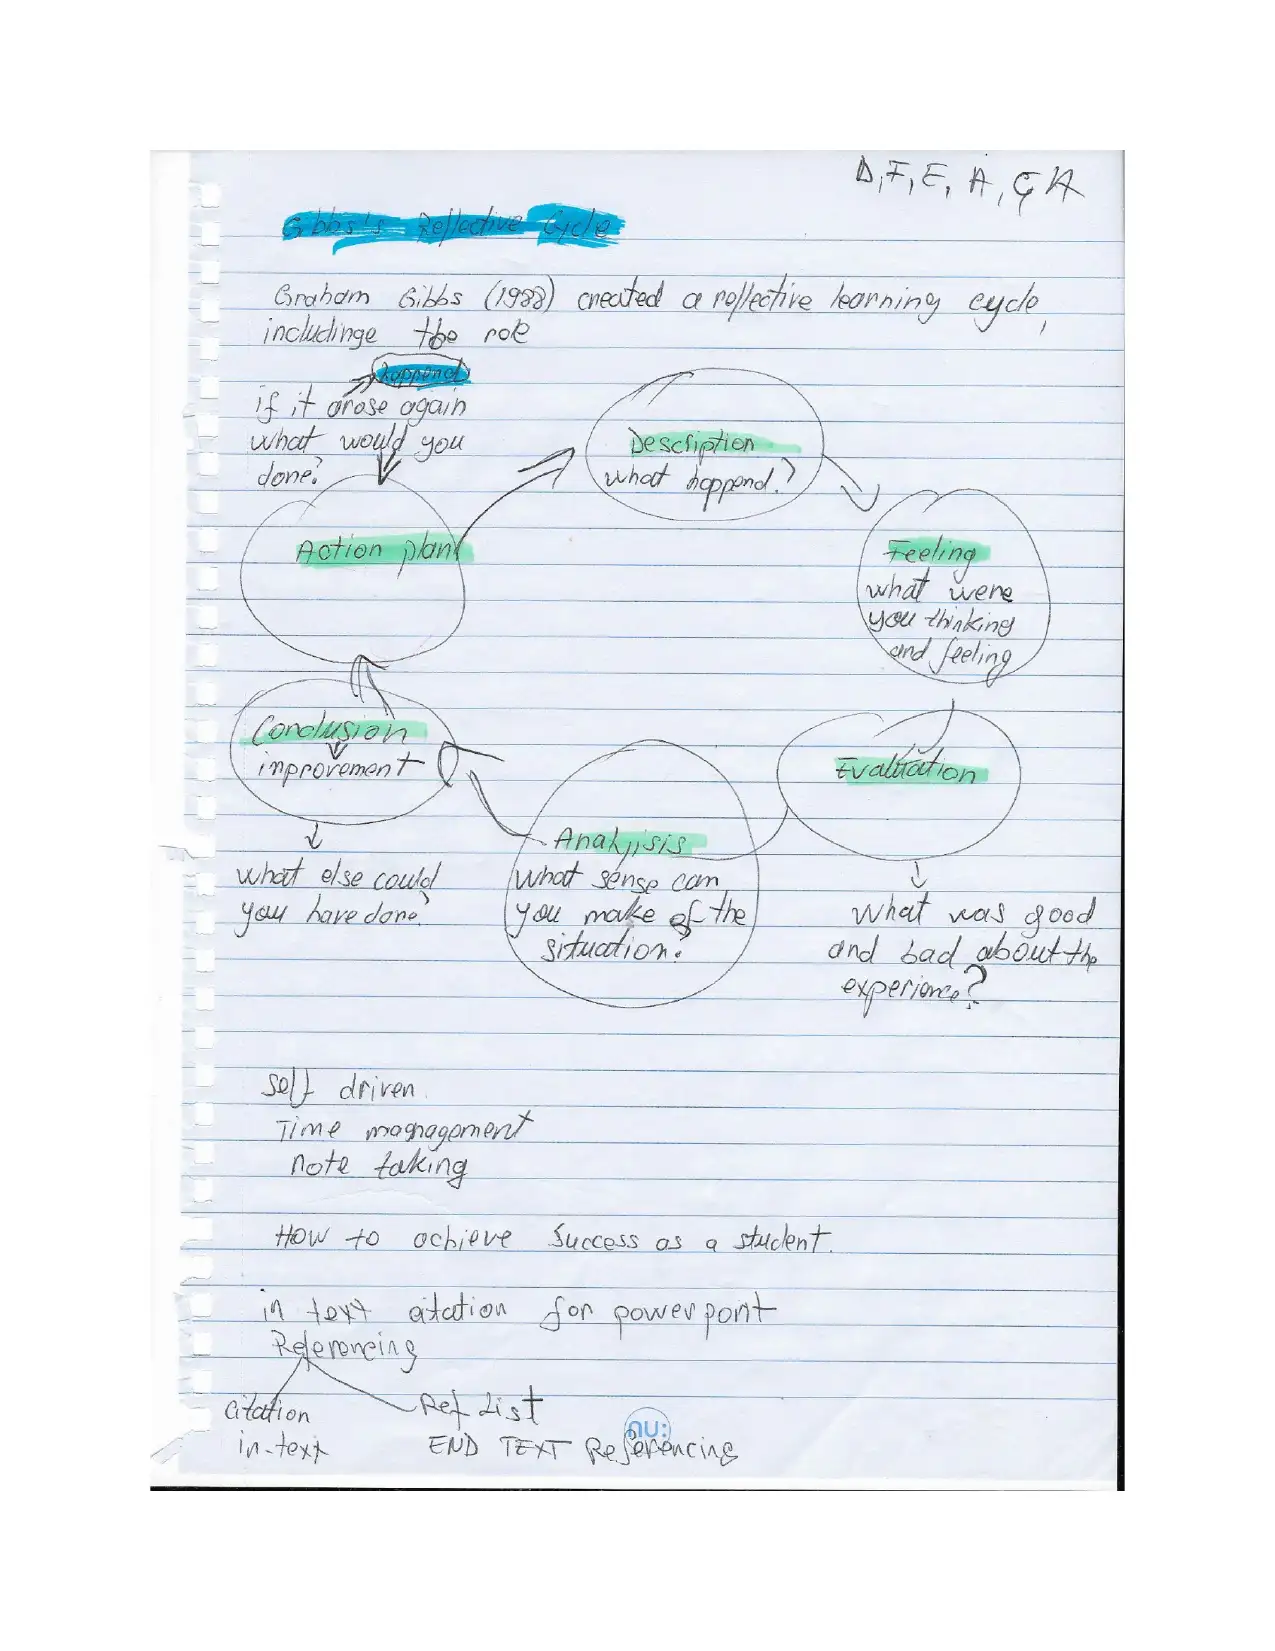 D, F, E, A, C, A
Gibbs's Reflective Cycle
Graham Gibbs (1988) created a reflective learning cycle,
includinge the role
happend
if it arose again
what would you
done?
Action plan
Description
what happend?
Feeling
what were
you thinking
and feeling
Evaluation
what was good
and bad about the
experience?
Analysis
what sense can
you make of the
situation?
Conclusion
improvement
what else could
you have done?
Self driven
Time magnagement
note taking
How to achieve success as a student.
in text citation for powerpont
Referencing
Citation
in-text
Ref List
END TEXT Referencing
nu: